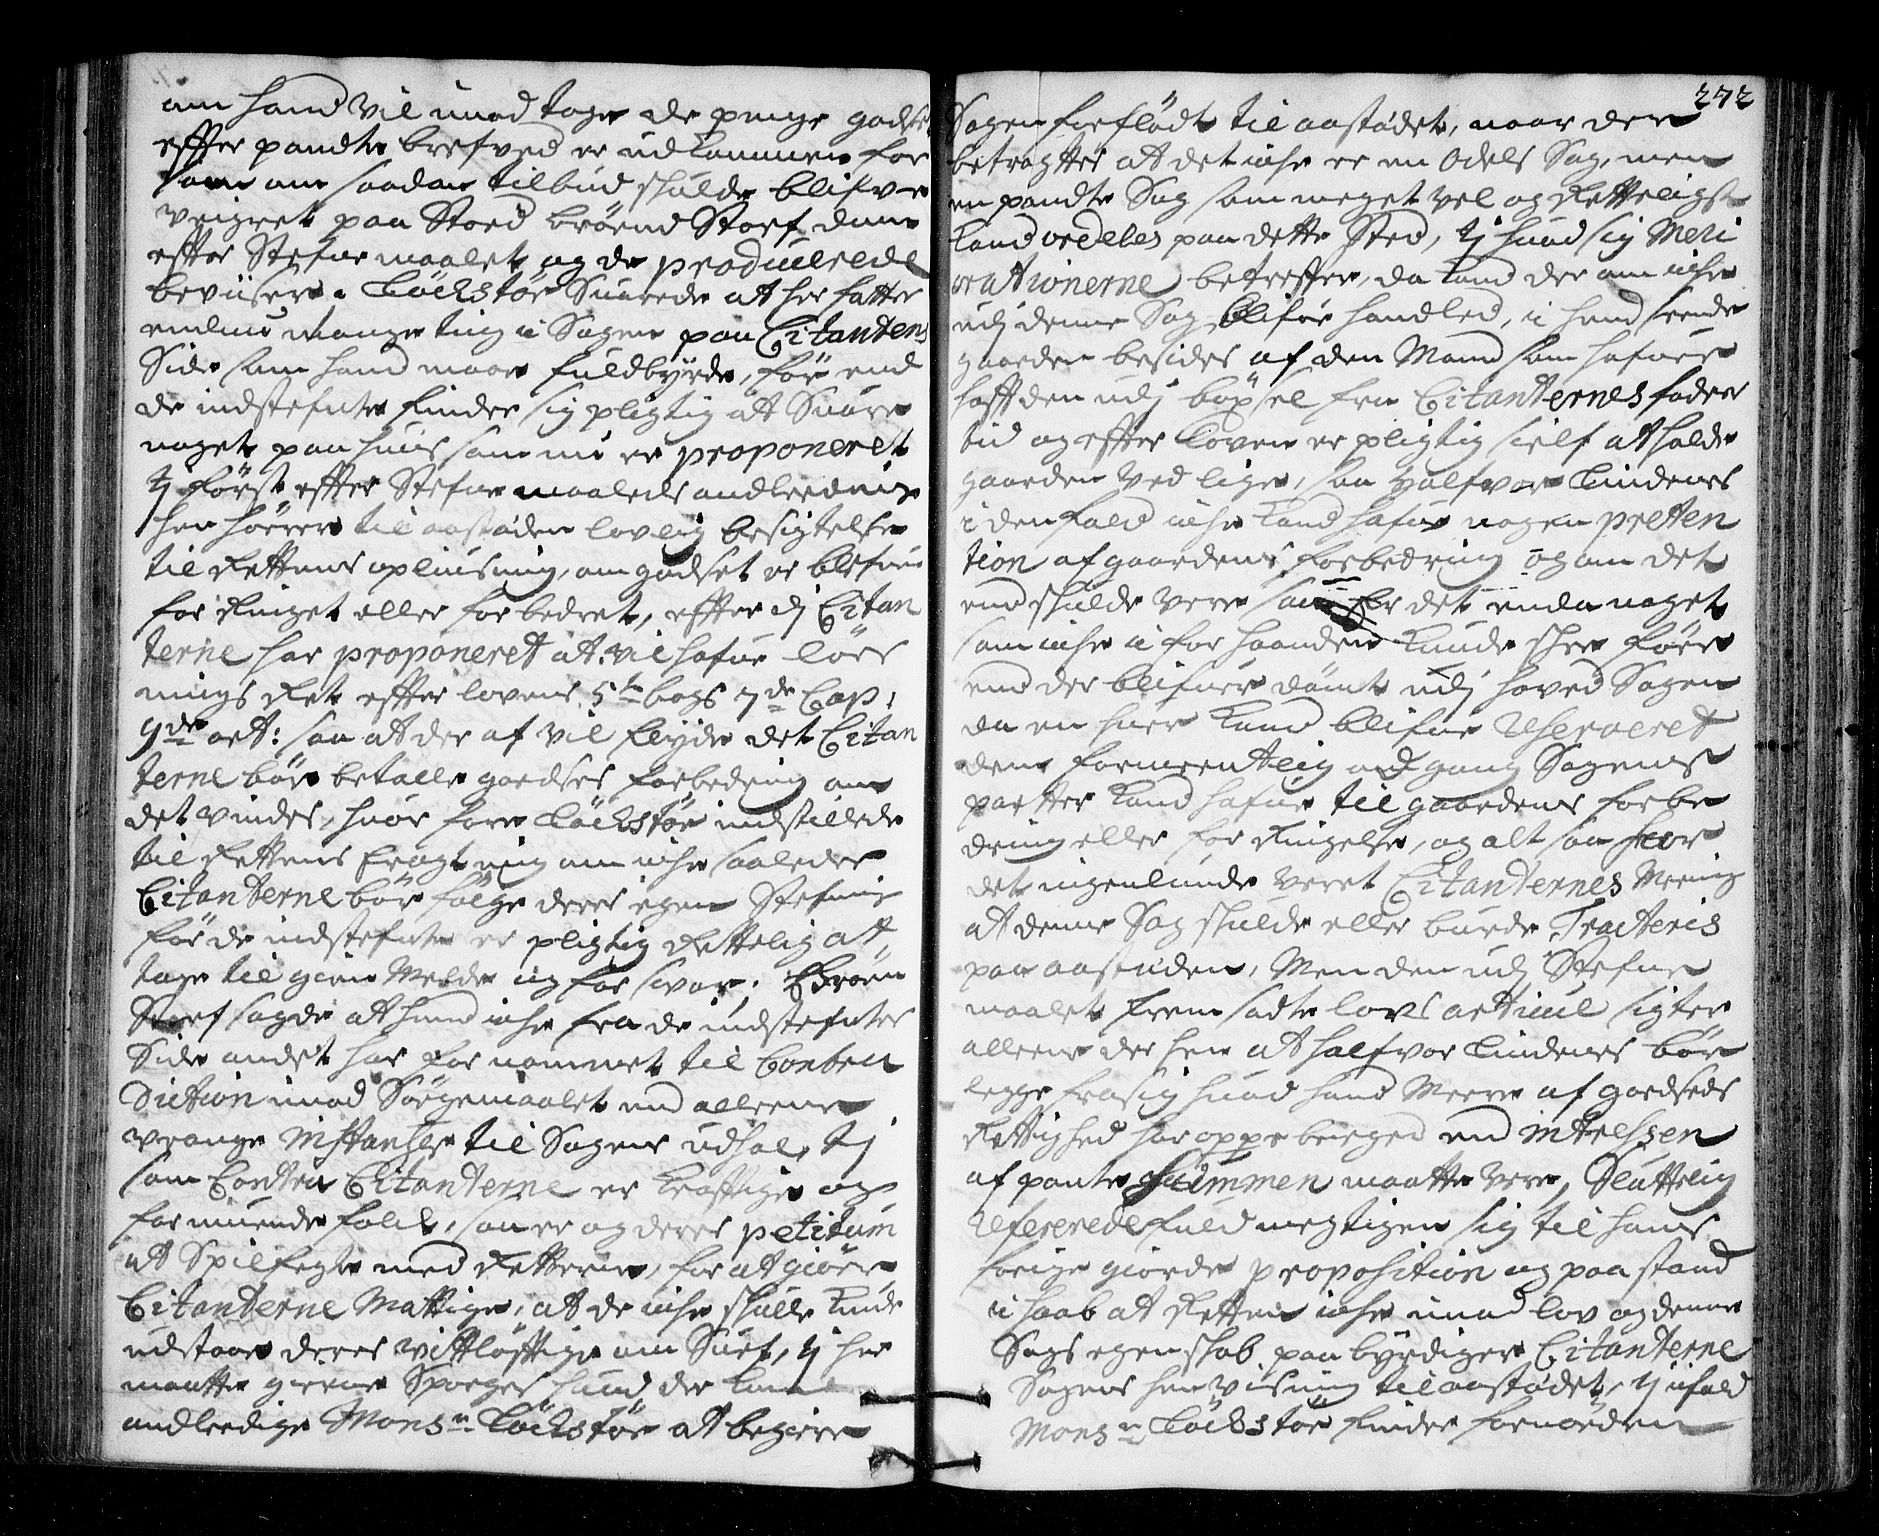 om hand vil imod tage de penge godset
effter pandte brefved er udkommen for
som om saadan tilbud skulde blifve
veigret paa Stoed Brönd Storf dom
effter Stefnemaalet og de producerede
beviiser. Löchstör Svarede at her fatter
endnu mange ting i Sagen paa Citantens
Side som hand maae fuldbyrde, för end
de indstefnte finder sig pligtig at Svare
noget paa huis som nu er proponeret
tj först effter Stefnemaaleds andleedning
hen hörer til aastæden lovlig besigtelse
til Rettens opliusning, om godset er blefven
forringet eller forbedret, effter dj Citan
terne har proponeret at vil hafve lös
nings Ret effter lovens 5te bogs 7de Cap:
9de art: saa at der af vil flyde det Citan
terne bör betalle goedses forbedring om
det vindes, huor fore Löchstör indstillede
til Rettens eragtning om iche saaledes
Citanterne bör fölge deres egen Stefning
för de indstefnte er pligtig Rettelig at
tage til gien Mælde og for svar; Brön
Storf sagde at hand iche fra de indstefntes
Side andet har fornommet til Contra
diction imod Sögemaalet end alleene
vrange instantzer til Sagens udhal, tj
som Contra Citanterne er kraftige og
formuende folck, saa er og deres petitum
at Spilfegte med Retterne, for at giöre
Citanterne Mattige, at de iche skulle kunde
udstaae deres vittlöftige om Suef, tj her
maatte gierne Spörges huad der kand
andleedige Monsr. Löchstör at begiere
272
Sagen forflödt til aastædet, naar der
betragtes at det iche er en Odels Sag, men
en pandte Sag som meget vel og Retteligst
kand ordeles paa dette Sted, tj huad sig Meli
orationerne betreffer, da kand der om iche
udj denne Sag blifve handled, i hend seende
gaarden besides af den Mand som hafver
hafft den udj böxel fra Citanternes faders
tid og effter loven er pligtig self at holde
gaarden ved lige, saa Halfvor Lindenes
i den fald iche kand hafve nogen preten
tion af gaardens forbedring og om det
end skulde vere saa Er det enda noget
som iche i forhaanden kunde skee förr
end der blifver dömt udj hoved Sagen
da en huer kand blifve Reserveret
den formeentlig adgang Sagens
partter kand hafve til gaardens forbe
dring eller forringelse, og alt saa har
det ingenlunde veret Citanternes Meening
at denne Sag skulde eller burde Tracteris
paa aastæden, Men den udj Stefne
maalet fremsadte lovs articul sigter
alleene der hen at Halfvor Lindenes bör
legge frasig huad hand Meere af goedseds
Rettighed har oppebærged end intressen
af pante Summen maatte vere, Sluttelig
Refererede fuldmegtigen sig til hans
forige giorde proposition og paastand
i haab at Retten iche imod lov og denne
Sags egenskab paabyrdiger Citanterne
Sagens henviisning til aastædet, tj ifald
Monsr Löchstör finder fornöden